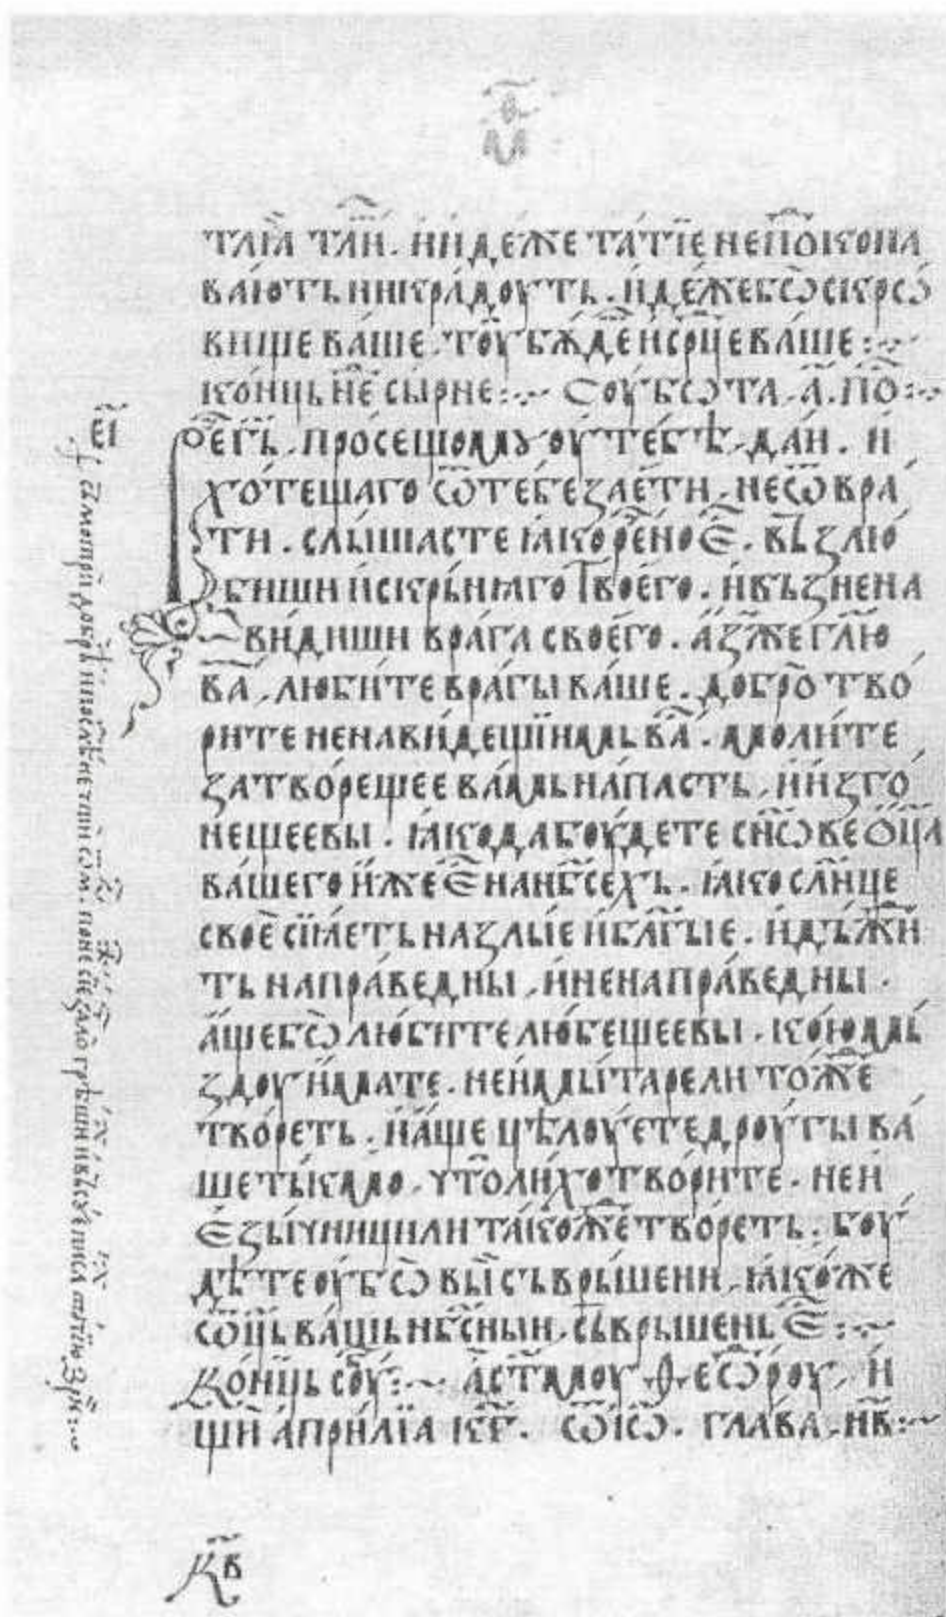 в҃
м
тлꙗ̀ тли́ . ни и́де́же та́тїе неп̾ко́пова
ва́ютъ ни кра́доуть . и҆де́же бѡ̀ скрѡ́
вище ва́ше . тоу̀ бꙋ́де и҆ ср҃це ва́ше :~
ко́нць не҃ сы́рне :~ Соу́бѡта . а҃ . по҃ :~
е҃і
Рече г҃ь . про́сещомꙋ оу҆ те́бѣ , да́и . и҆
хо́тещаго ѿ те́бе заети , не ѿвра́
ти . слы́шасте ꙗ҆ко рече́но є҃ . въ́злю́
биши и҆́скрьнꙗго Твое́го . и҆ възнена
ви́диши вра́га свое́го . а҆́зже гл҃ю
ва́ , люби́те враѓы ва́ше . добро̀ тво́
рите ненави́дещїимь ва . моли́те
за тво́рещее вамь на́пасть , и҆ и҆зго́
нещее вы . ꙗ҆ко да боу́дете сн҃ове ѻ҆ц҃а
ва́шего и҆́же є҃ на нб҃сехь . ꙗ҆ко сл҃нце
своѐ сїꙗ́еть на злы́е и҆ бл҃гы́е . и҆ дъжди́
ть на пра́ведны , и҆ не на пра́ведны .
а҆́ще бѡ̀ лю́бите лю́бещее вы . ко́ю мь́
здоу и҆́мате . не и҆ мы́таре ли то́же
тво́реть . и҆ а҆́ще цѣлоу́ете дроу́гы ва́
ше ты́кмо , что̀ ли́хо тво́рите . не и҆
є҆зы́чници ли та́коже тво́реть . боу́
дѣте оу҆́бѡ вы̀ съврьшени , ꙗ҆ко́же
ѻ҆ц҃ь ва́шь нб҃сныи , съврьшень є҃ :~
Ко́нць соу҃ :~ а҆ ст҃моу Ѳеѡ́роу , и҆
щи а҆при́лїа к҃г . ѿ іѡ҃ . гла́ва , н҃в :~
к҃в